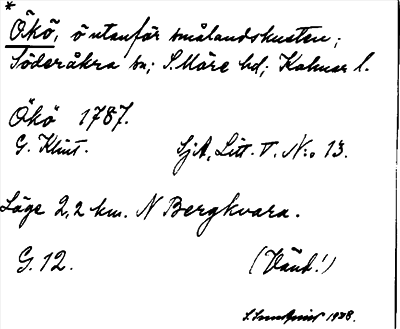 *
Ökö, ö utanför smålandskusten;
Söderåkra sn; S. Möre hd; Kalmar l.
Ökö 1787.
G. Klint. SjA, Litt. T. N:o 13.
Läge 2,2 km. N Bergkvara.
G. 12. (Vänd!)
1938.